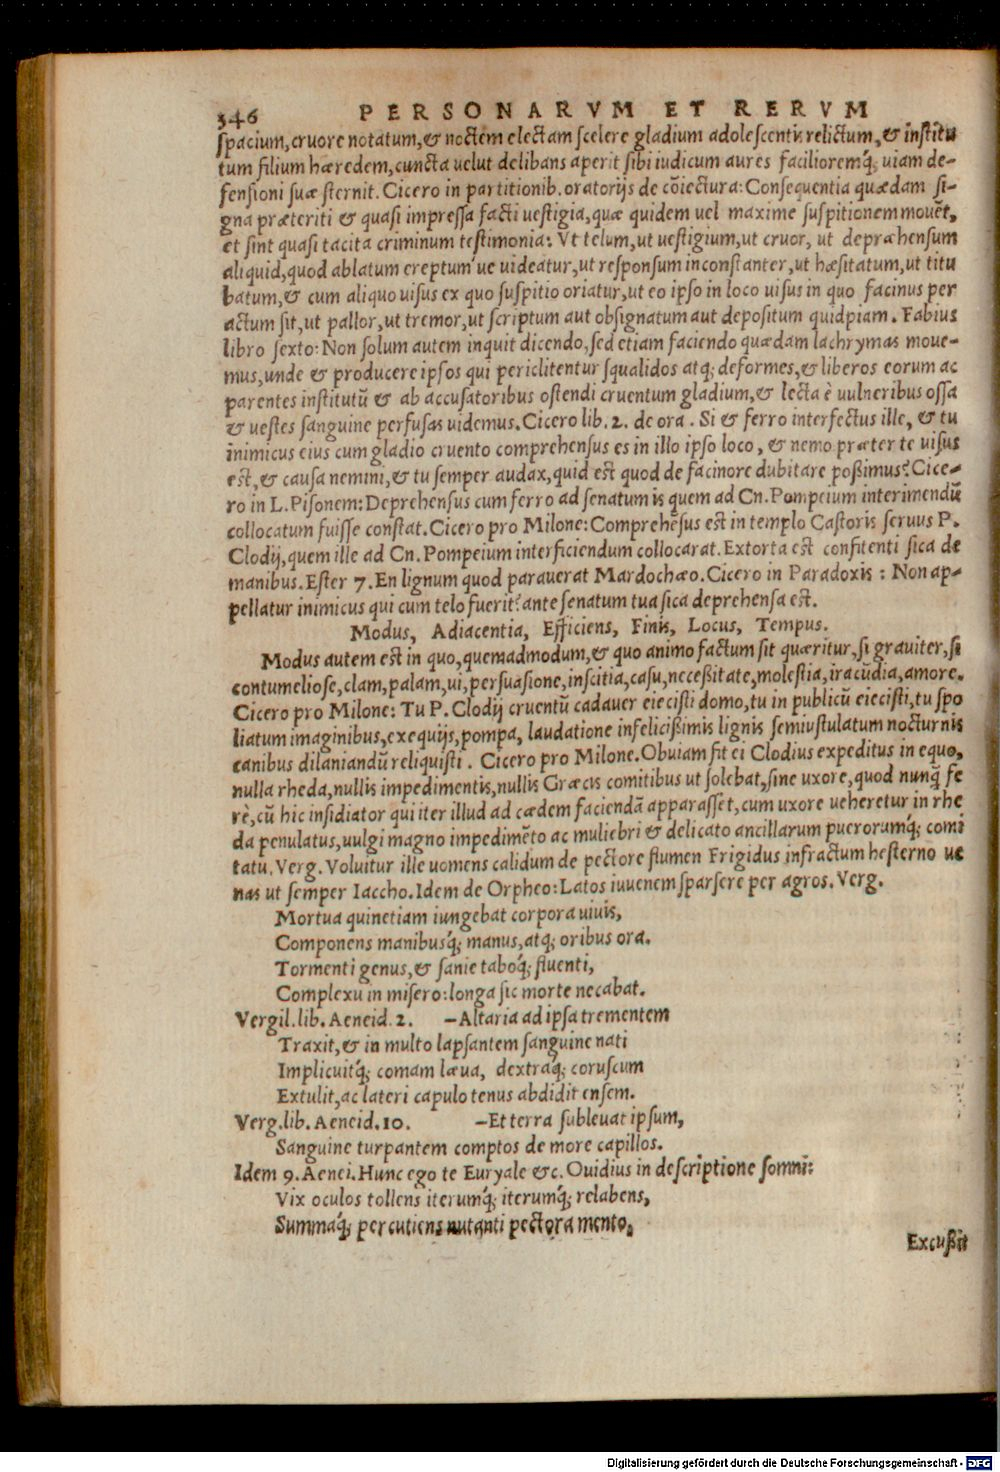 346 PERSONARVM ET RERVM
spacium, cruore notatum, & noctem electam scelere gladium adolescentis relictum, & institu
tum filium hæredem, cuncta uelut delibans aperit sibi iudicum aures facilioremq́; uiam de-
fensioni suæ sternit. Cicero in partitionib. oratorijs de cõiectura: Consequentia quædam si-
gna præteriti & quasi impressa facti uestigia, quæ quidem uel maxime suspitionem mouẽt,
et sint quasi tacita criminum testimonia: Vt telum, ut uestigium, ut cruor, ut depræhensum
aliquid, quod ablatum ereptum'ue uideatur, ut responsum inconstanter, ut hæsitatum, ut titu
batum, & cum aliquo uisus ex quo suspitio oriatur, ut eo ipso in loco uisus in quo facinus per
actum sit, ut pallor, ut tremor, ut scriptum aut obsignatum aut depositum quidpiam. Fabius
libro sexto: Non solum autem inquit dicendo, sed etiam faciendo quædam lachrymas moue-
mus, unde & producere ipsos qui periclitentur squalidos atq; deformes, & liberos eorum ac
parentes institutũ & ab accusatoribus ostendi cruentum gladium, & lecta è uulneribus ossa
& uestes sanguine perfusas uidemus. Cicero lib. 2. de ora. Si & ferro interfectus ille, & tu
inimicus eius cum gladio cruento comprehensus es in illo ipso loco, & nemo præter te uisus
est, & causa nemini, & tu semper audax, quid est quod de facinore dubitare poßimus? Cice-
ro in L. Pisonem: Deprehensus cum ferro ad senatum is quem ad Cn. Pompeium interimendũ
collocatum fuisse constat. Cicero pro Milone: Comprehẽsus est in templo Castoris seruus P.
Clodij, quem ille ad Cn. Pompeium interficiendum collocarat. Extorta est confitenti sica de
manibus. Ester 7. En lignum quod parauerat Mardochæo. Cicero in Paradoxis: Non ap-
pellatur inimicus qui cum telo fuerit? ante senatum tua sica deprehensa est.
Modus, Adiacentia, Efficiens, Finis, Locus, Tempus.
Modus autem est in quo, quemadmodum, & quo animo factum sit quæritur, si grauiter, si
contumeliose, clam, palam, ui, persuasione, inscitia, casu, neceßitate, molestia, iracũdia, amore.
Cicero pro Milone: Tu P. Clodij cruentũ cadauer eiecisti domo, tu in publicũ eiecisti, tu spo
liatum imaginibus, exequijs, pompa, laudatione infelicißimis lignis semiustulatum nocturnis
canibus dilaniandũ reliquisti. Cicero pro Milone. Obuiam fit ei Clodius expeditus in equo,
nulla rheda, nullis impedimentis, nullis Græcis comitibus ut solebat, sine uxore, quod nunq̃ fe
rè, cũ hic insidiator qui iter illud ad cædem faciendã apparasset, cum uxore ueheretur in rhe
da penulatus, uulgi magno impedimẽto ac muliebri & delicato ancillarum puerorumq́; comi
tatu. Verg. Voluitur ille uomens calidum de pectore flumen Frigidus infractum hesterno ue
nas ut semper Iaccho. Idem de Orpheo: Latos iuuenem sparsere per agros. Verg.
Mortua quinetiam iungebat corpora uiuis,
Componens manibusq́; manus, atq; oribus ora.
Tormenti genus, & sanie taboq́; fluenti,
Complexu in misero: longa sic morte necabat.
Vergil. lib. Aeneid. 2. —Altaria ad ipsa trementem
Traxit, & in multo lapsantem sanguine nati
Implicuitq́; comam læua, dextraq́; coruscum
Extulit, ac lateri capulo tenus abdidit ensem.
Verg. lib. Aeneid. 10. —Et terra subleuat ipsum,
Sanguine turpantem comptos de more capillos.
Idem 9. Aenei. Hunc ego te Euryale &c. Ouidius in descriptione somni:
Vix oculos tollens iterumq́; iterumq́; relabens,
Summaq́; percutiens nutanti pectora mento.
Excußit
Digitalisierung gefördert durch die Deutsche Forschungsgemeinschaft - DFG